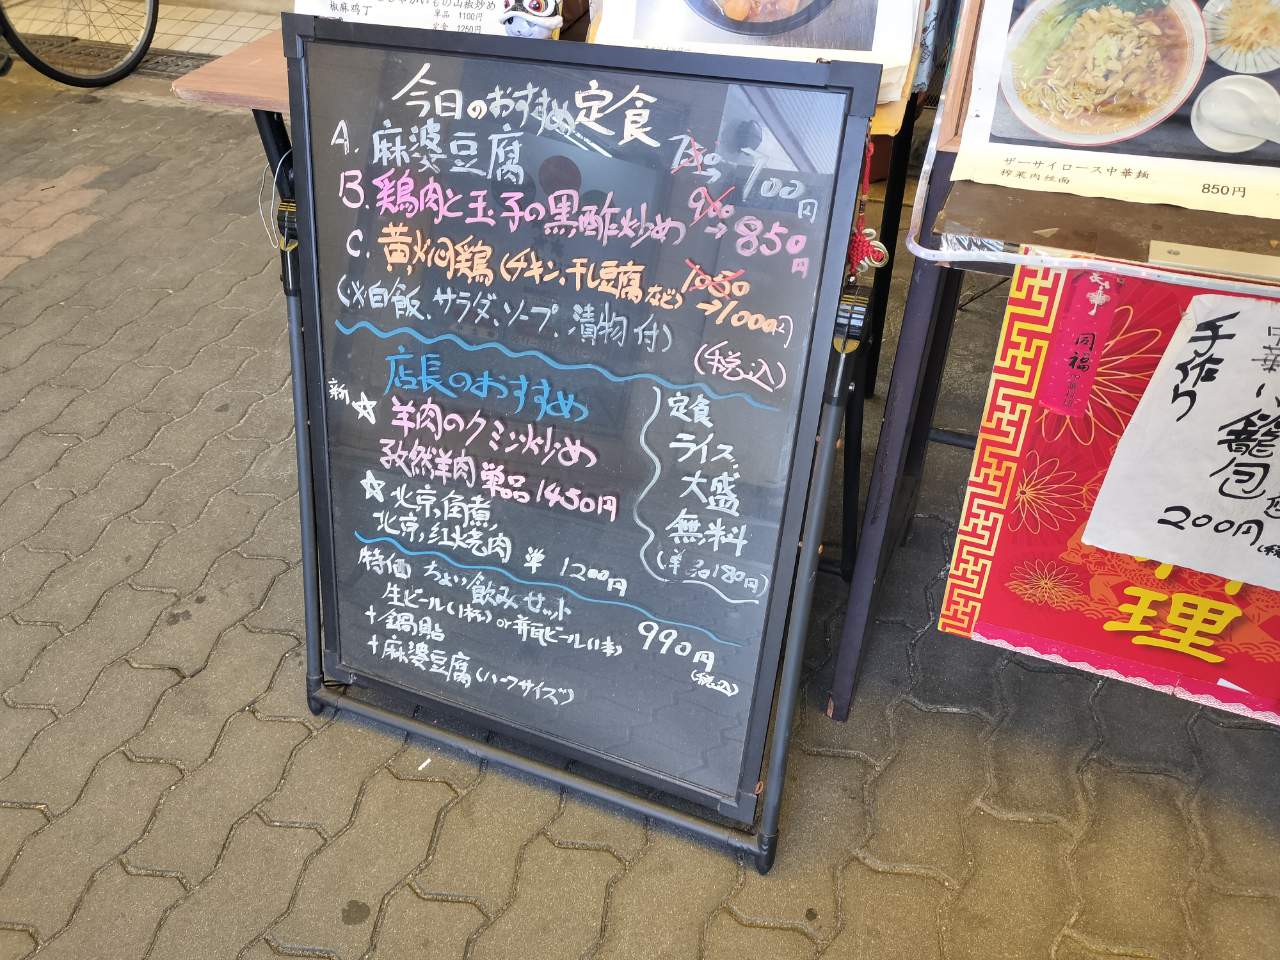 もの山椒炒め
椒麻鸡丁 単品 1100円
定食 1250円
今日のおすすめ定食
A. 麻婆豆腐 750→700円
B. 鶏肉と玉子の黒酢炒め 900→850円
C. 黄火焖鶏(チキン、干し豆腐など) 1050→1000円
(※白飯、サラダ、ソープ、漬物付)
(税込)
店長のおすすめ
新☆羊肉のクミン炒め
孜然羊肉 単品1450円
☆北京角煮
北京红烧肉 単 1200円
定食
ライス
大盛
無料
(単品180円)
特価 ちょい飲みセット
生ビール(1杯) or 瓶ビール(1本) 990円
+鍋貼 (税込)
+麻婆豆腐(ハーフサイズ)
ザーサイロース中華麺
榨菜肉丝面 850円
同福
手作り
籠包
200円
理